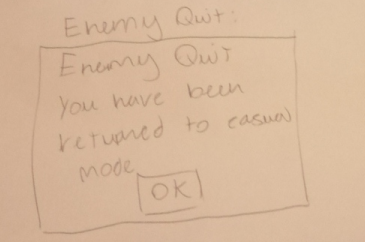 Enemy Quit:
Enemy Quit
You have been
returned to casual
mode
OK